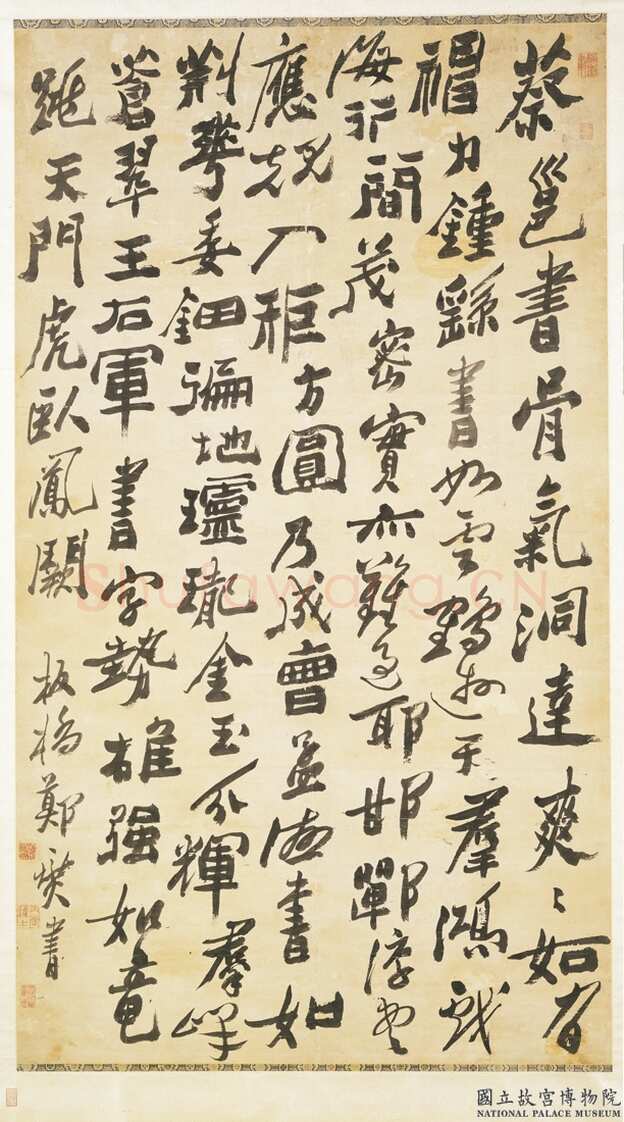 蔡邕書骨氣洞達爽々如有
神力鍾繇書如雲鵠遊天羣鴻戲
海行簡茂密實亦難過耶邯鄲淳書
應規入矩方圓乃成會益海書如
荊華委鈿遍地瓏金玉分輝羣峰
蒼翠王右軍書字勢雄强如竜
跳天門虎臥鳳闕
板橋鄭燮書
Shufawang.CN
國立故宮博物院
NATIONAL PALACE MUSEUM